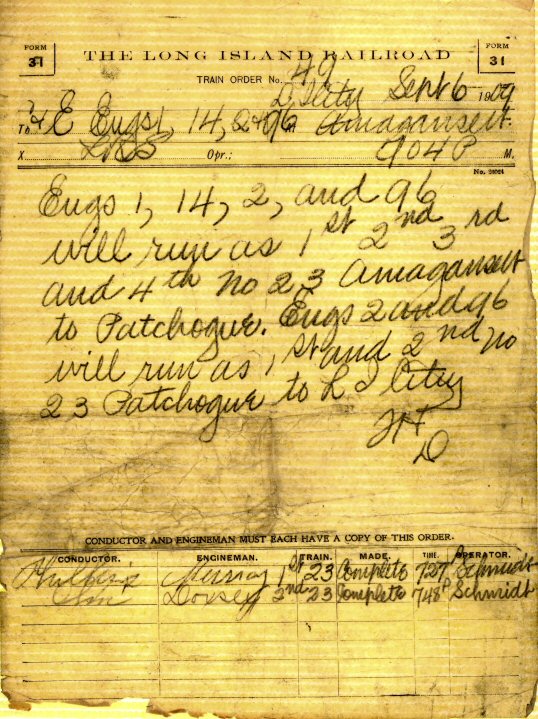 FORM 31
THE LONG ISLAND RAILROAD
FORM 31
TRAIN ORDER No. 49
L I City Sept 6 1909
To C & E Engs 1, 14, 2 & 96 At Amagansett
X Opr.; 704 P M.
No. 31024
Engs 1, 14, 2, and 96
will run as 1st 2nd 3rd
and 4th No 23 Amagansett
to Patchogue. Engs 2 and 96
will run as 1st and 2nd No
23 Patchogue to L I City
JH
D
CONDUCTOR AND ENGINEMAN MUST EACH HAVE A COPY OF THIS ORDER.
CONDUCTOR. ENGINEMAN. TRAIN. MADE. TIME. OPERATOR.
Murray 1st 23 Complete 727P Schmidt
Dorsey 2nd 23 Complete 748P Schmidt